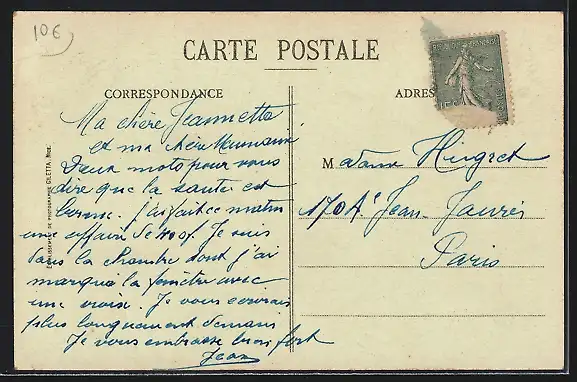 10€
CARTE POSTALE
CORRESPONDANCE
ADRES
Ma chère Jeannette
et ma chère Maman
Deux mots pour vous
dire que la santé est
bonne. j'ai fait ce matin
une affaire de 400f. Je suis
dans la chambre dont j'ai
marqué la fenêtre avec
une croix. Je vous écrirais
plus longuement demain
Je vous embrasse bien fort
Jean
Madame Hugret
170 A. Jean-Jaurès
Paris
ETABLISSEMENT DE PHOTOGRAPHIE GILETTA, NICE.